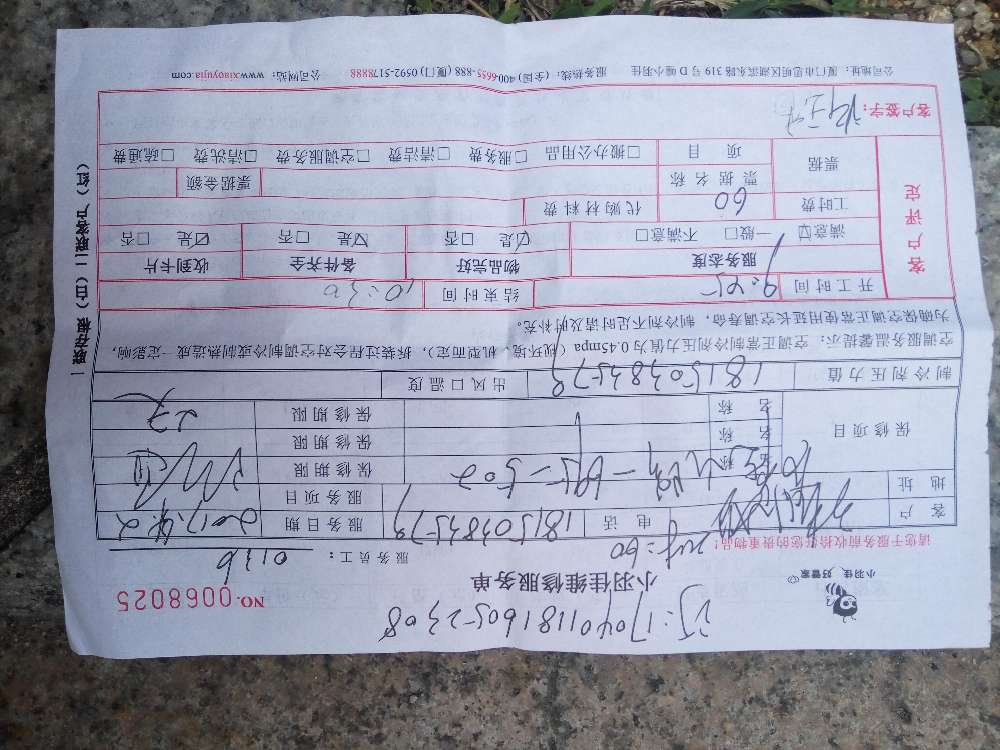 订:17040118160522308
小羽佳,好管家
小羽佳维修服务单
NO.0068025
2H=60
服务员工: 0136
请您于服务前收拾好您的贵重物品!
客户 电话 18150383579 服务日期 2017.4.2
地址 服务项目
保修项目 名称 保修期限
名称 保修期限
名称 保修期限
制冷剂压力值 18150383579 出风口温度
空调服务温馨提示:空调正常制冷剂压力值为0.45mpa(视环境、机型而定),拆装过程会对空调制冷或制热造成一定影响,
为确保空调正常使用延长空调寿命,制冷剂不足时请及时补充。
客户评定
开工时间 9:45 结束时间 10:30
服务态度 物品完好 备件齐全 收到卡片
满意☑ 一般☐ 不满意☐ ☑是 否☐ ☑是 否☐ ☑是 否☐
工时费 60 代购材料费
票据 票据名称 票据金额
项目 ☐搬办公用品 ☐服务费 ☐清洁费 ☐空调服务费 ☐清洗费 ☐疏通费
客户签字:
一联存根(白)二联客户(红)
公司地址:厦门市思明区湖滨东路319号D幢小羽佳 服务热线:(全国)400-6655-888 (厦门)0592-5178888 公司网站:www.xiaoyujia.com